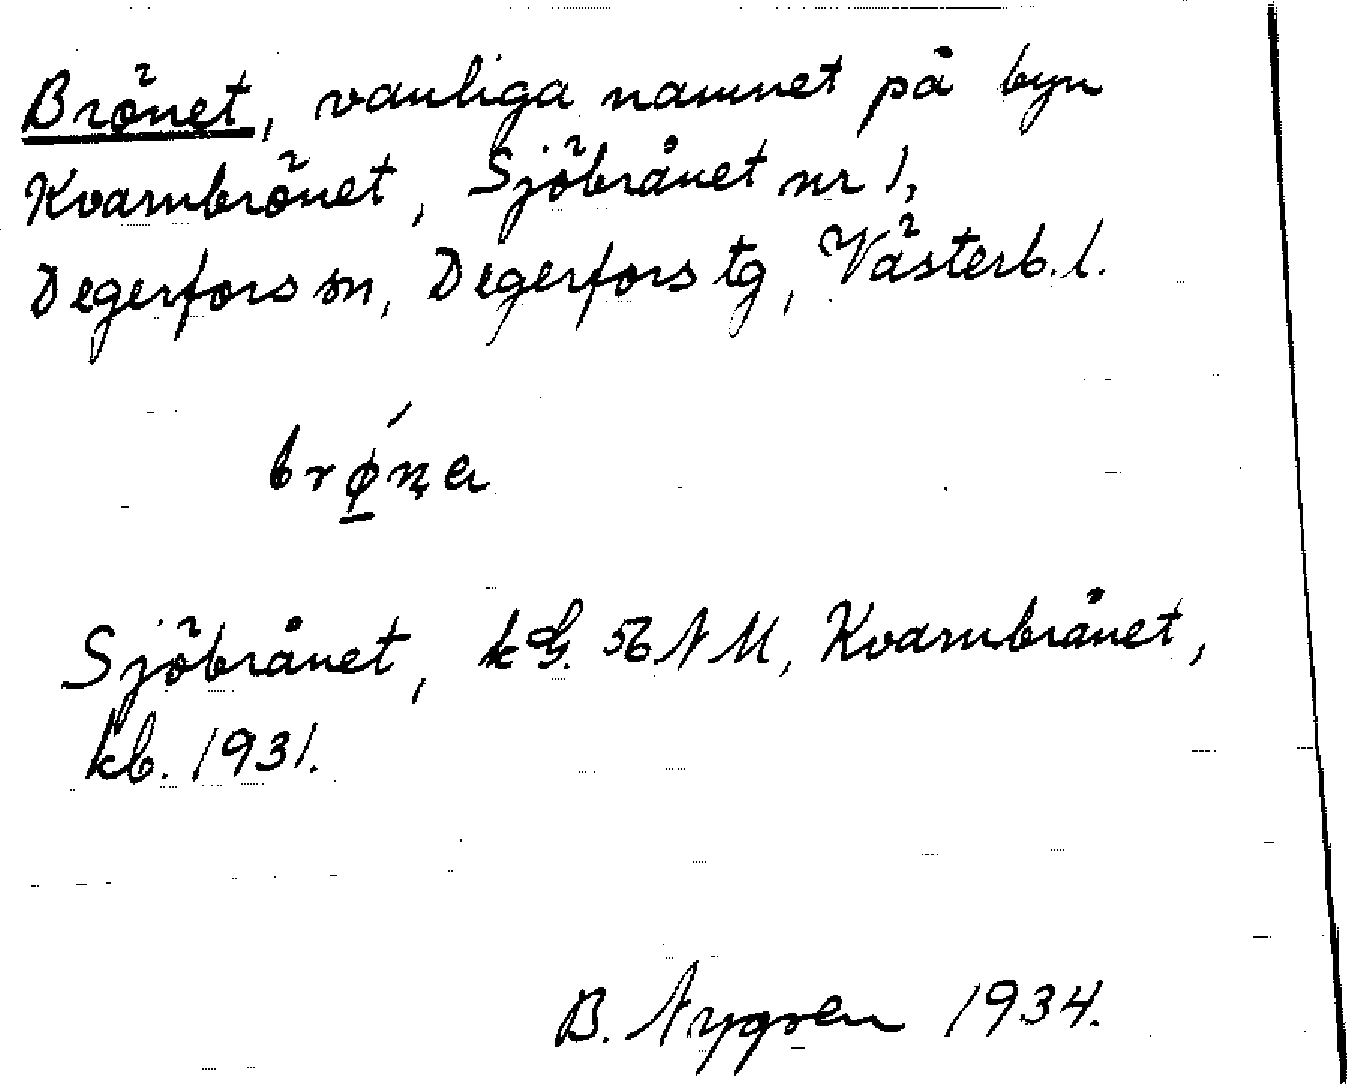 Brönet, vanliga namnet på byn
Kvarnbrönet, Sjöbrånet nr 1,
Degerfors sn, Degerfors tg, Västerb. l.
brǿ̱na
Sjöbrånet, kG. 56 NM, Kvarnbrånet,
kb. 1931.
B. Nygren 1934.